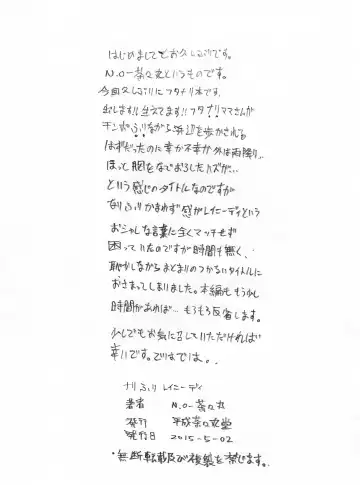 はじめましてとお久しぶりです。
N.O-茶々丸というものです。
今回久しぶりにフタナリ本です。
出します!!生えてます!!フタナリママさんが
チンポぶりながら
を歩かされる
はずだったのに幸か不幸か外は雨降り…
ほっと胸をなでおろしたハズが…
という感じのタイトルなのですが
なりふりかまわず感がレイニーディという
おシャレな言葉に全くマッチせず
困っていたのですが時間も無く、
恥かしながらまとまりのつかないタイトルに
おさまってしまいました。本編ももう少し
時間があれば…もろもろ反省します。
少しでもお気に召していただければ
幸いです。でわでは。
ナリふり レイニーディ
著者 N.O-茶々丸
発行 平成茶々文堂
発行日 2015-5-02
・無断転載及び複製を禁じます。